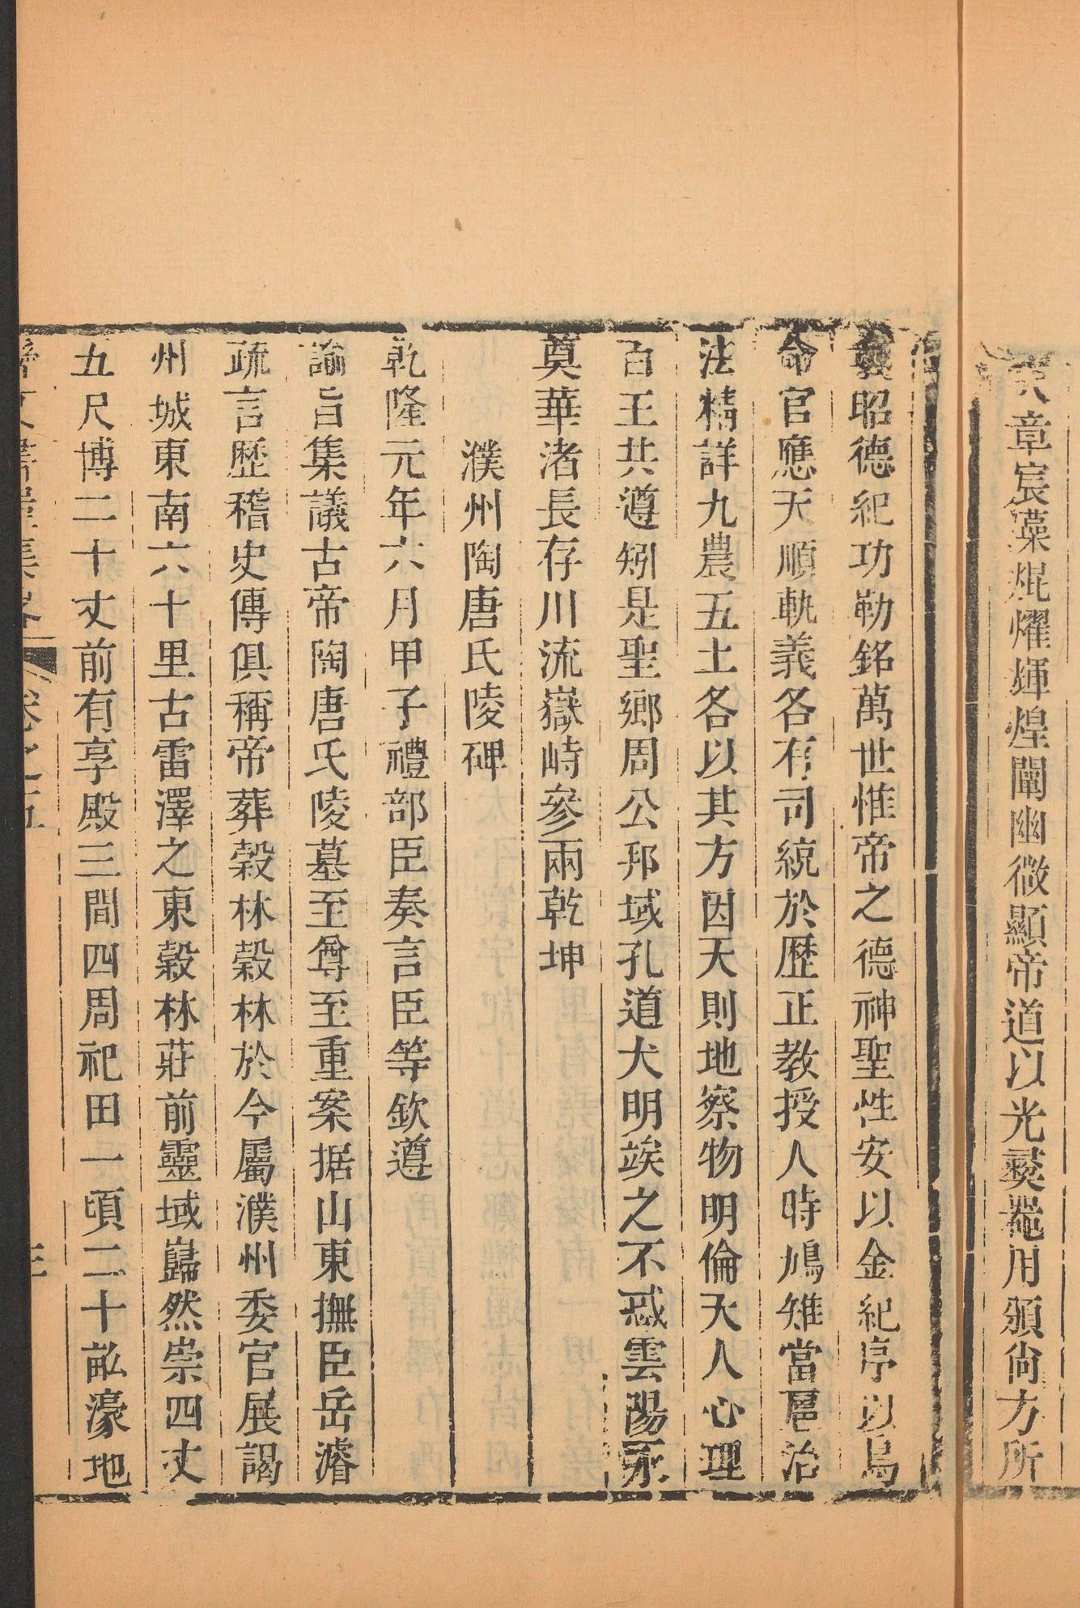 章宸藻焜燿輝煌闡幽微顯帝道以光爰鼂用頒尙方所
襄昭德紀功勒銘萬世惟帝之德神聖性安以金紀序以鳥
命官應天順軌義各有司統於歷正教授人時鳩雉當扈治
法精詳九農五土各以其方因天則地察物明倫天人心理
百王共遵矧是聖鄉周公邦域孔道大明竢之不惑雲陽永
奠華渚長存川流嶽峙參兩乾坤
濮州陶唐氏陵碑
乾隆元年六月甲子禮部臣奏言臣等欽遵
諭旨集議古帝陶唐氏陵墓至尊至重案据山東撫臣岳濬
疏言歷稽史傳俱稱帝葬穀林穀林於今屬濮州委官展謁
州城東南六十里古雷澤之東穀林莊前靈域巋然崇四丈
五尺博二十丈前有享殿三間四周祀田一頃二十畝濠地
卷之五
三